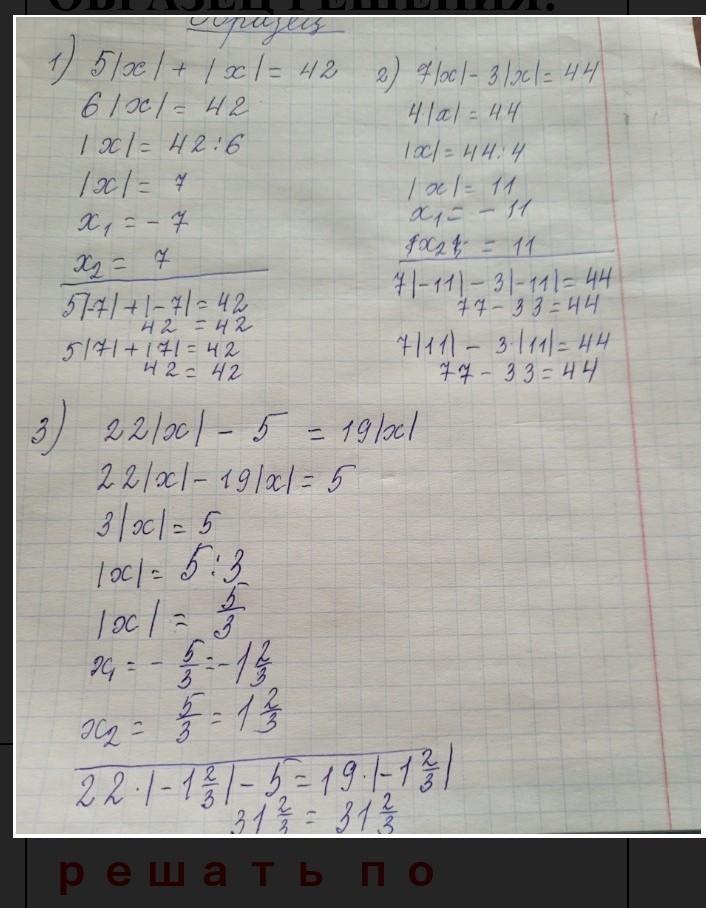 ОБРАЗЕЦ РЕШЕНИЯ:
Образец
1) 5|x| + |x| = 42
6|x| = 42
|x| = 42:6
|x| = 7
x₁ = -7
x₂ = 7
5|-7| + |-7| = 42
42 = 42
5|7| + |7| = 42
42 = 42
2) 7|x| - 3|x| = 44
4|x| = 44
|x| = 44:4
|x| = 11
x₁ = -11
x₂ = 11
7|-11| - 3|-11| = 44
77 - 33 = 44
7|11| - 3·|11| = 44
77 - 33 = 44
3) 22|x| - 5 = 19|x|
22|x| - 19|x| = 5
3|x| = 5
|x| = 5:3
|x| = 5/3
x₁ = - 5/3 = -1 2/3
x₂ = 5/3 = 1 2/3
22·|-1 2/3| - 5 = 19·|-1 2/3|
31 2/3 = 31 2/3
решать по